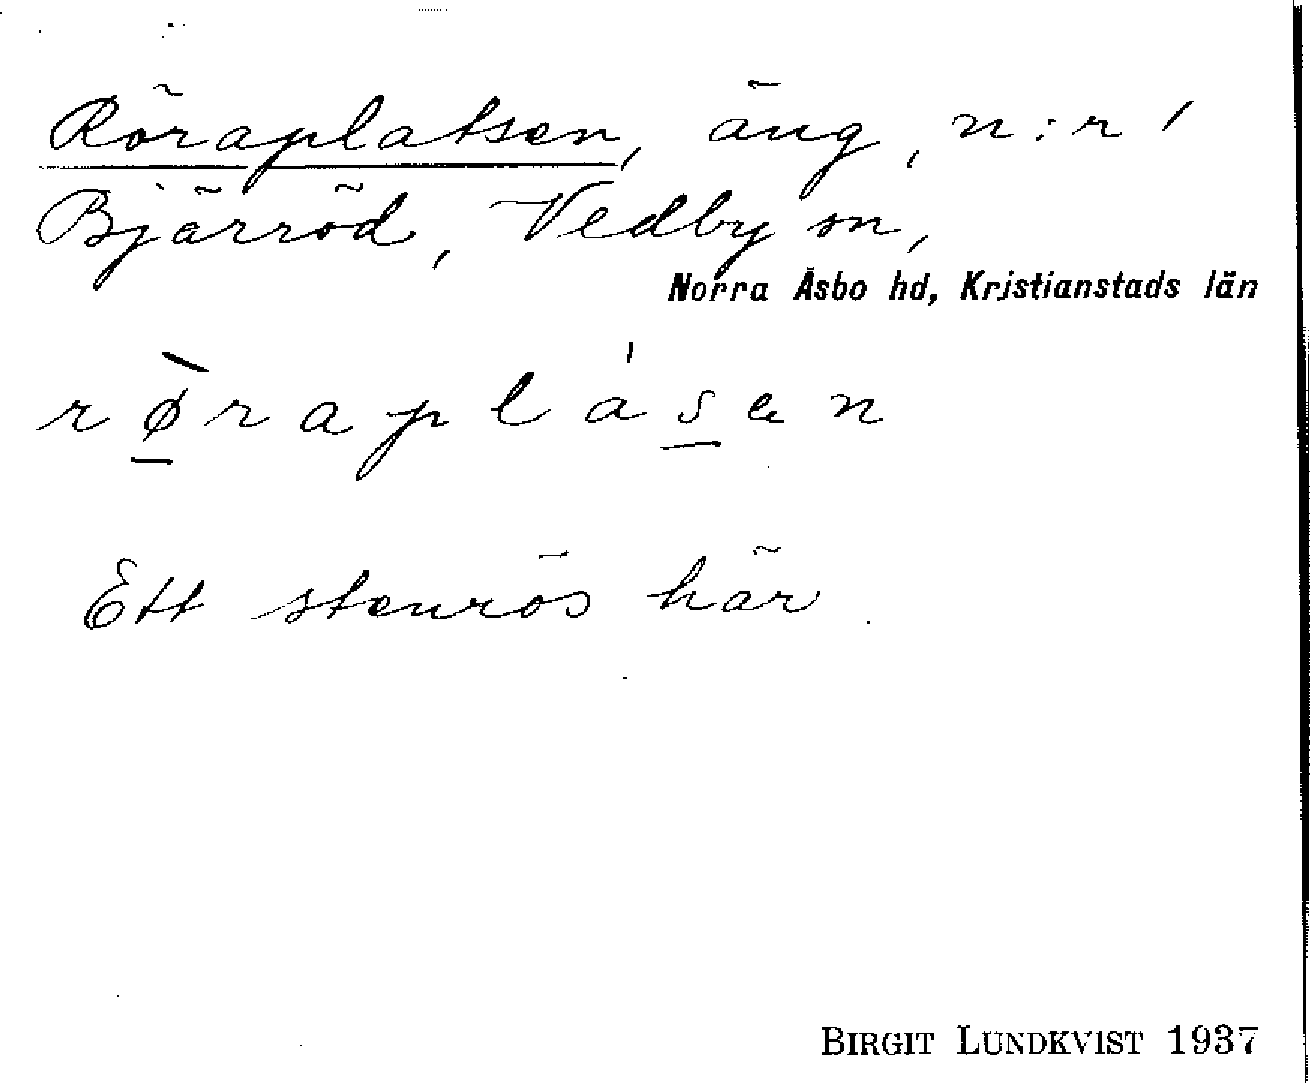 Röraplatsen, äng, n:r 1
Bjärröd, Vedby sn,
Norra Åsbo hd, Kristianstads län
rø̠̀raplás̠en
Ett stenrös här.
BIRGIT LUNDKVIST 1937